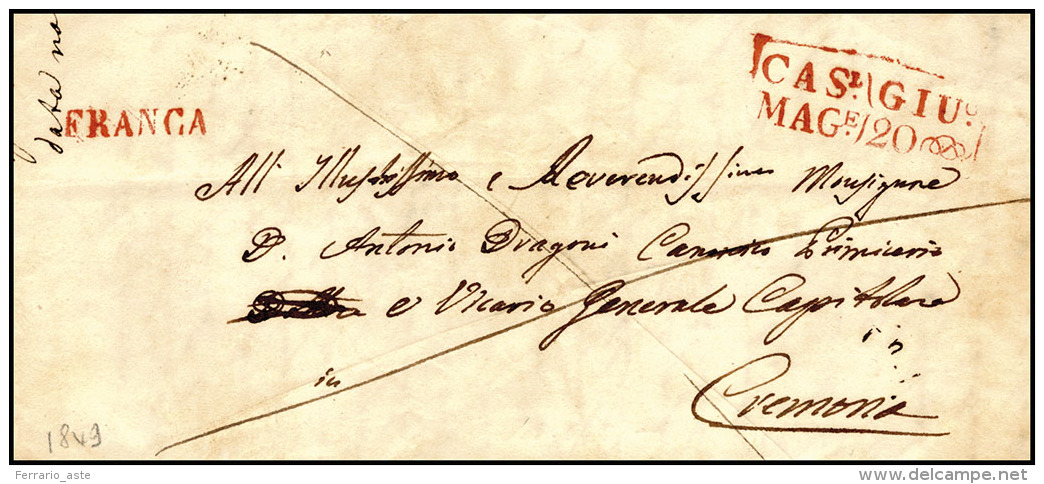 data no
FRANCA
CAS.L GIU.O
MAG.E 20
All Illustrissimo e Reverendissimo Monsignore
D. Antonio Dragoni Canonico Primicerio
e Vicario Generale Capitolare
in
in
Cremona
1843
Ferrario_aste
www.delcampe.net